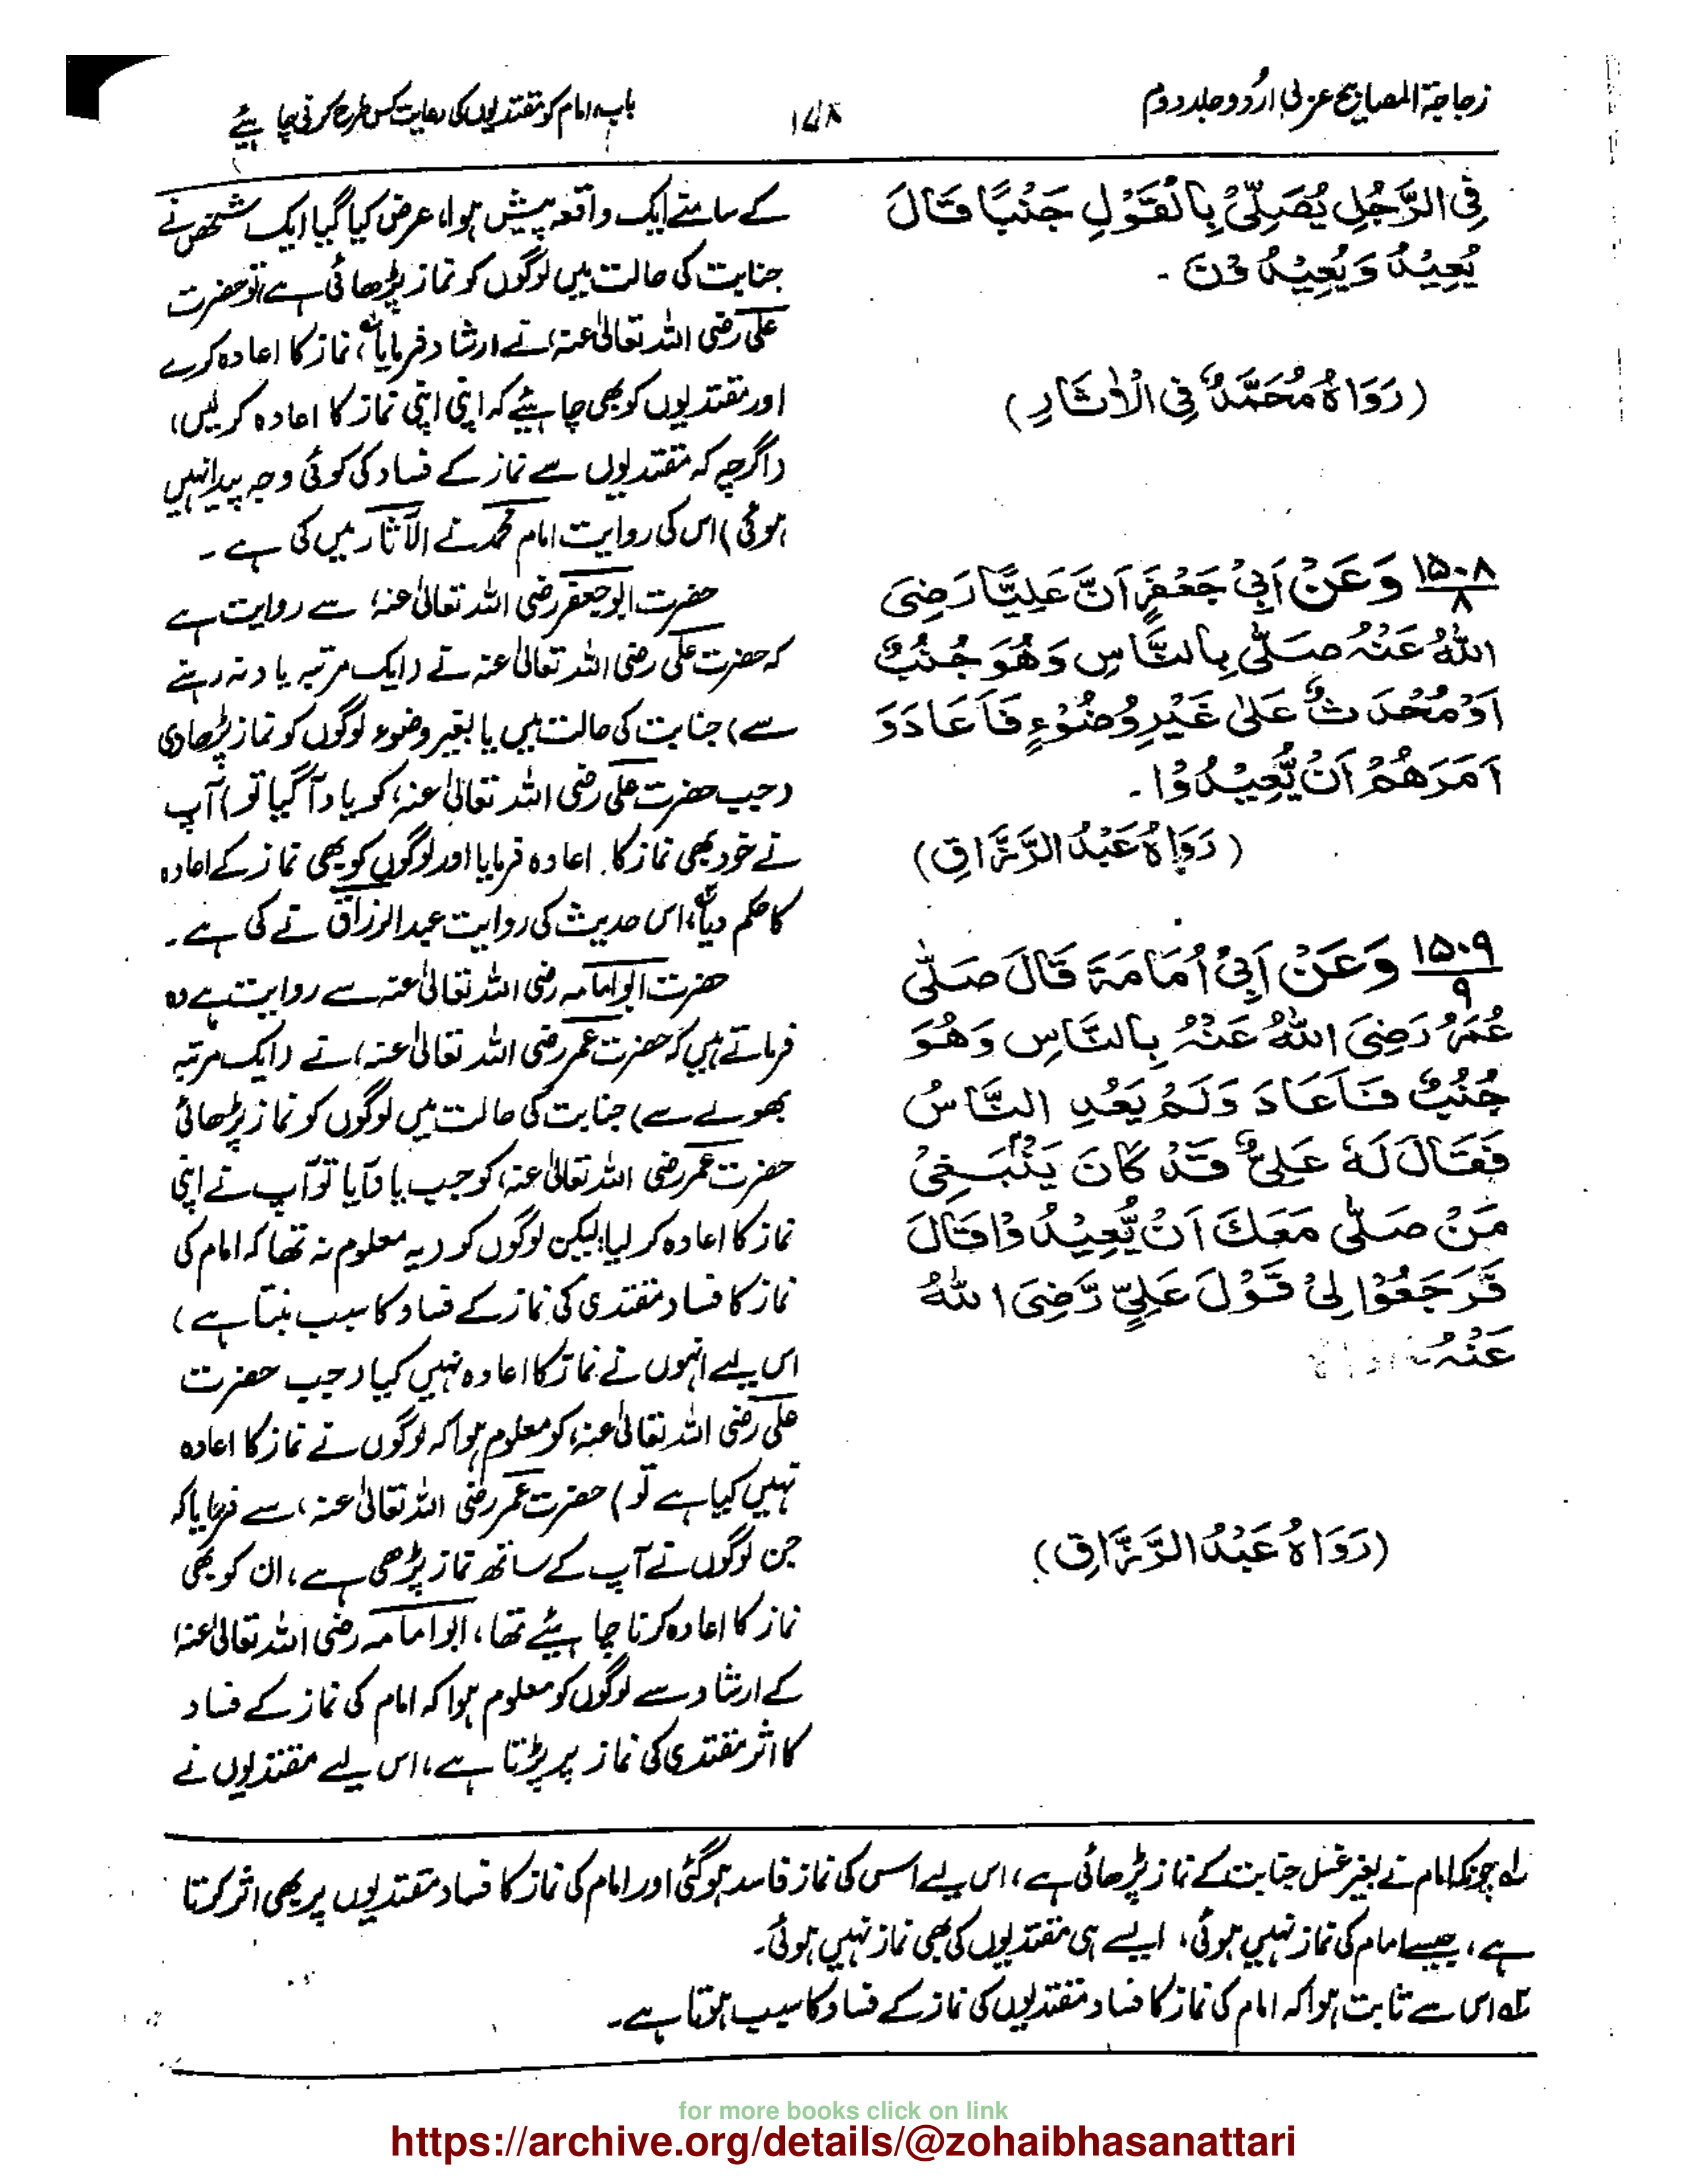 زجاجۃ المصابیح عربی اردو جلد دوم
۱۷۸
باب، امام کو مقتدیوں کی رعایت کس طرح کرنی چاہیئے
فِی الرَّجُلِ یُصَلِّیْ بِالْقَوْلِ جَنُبًا قَالَ
یُعِیْدُ وَیُعِیْدُوْنَ -
(رَوَاهُ مُحَمَّدٌ فِی الْاٰثَارِ)
۱۵۰۸
۸
وَعَنْ اَبِیْ جَعْفَرٍ اَنَّ عَلِیًّا رَضِیَ
اللّٰهُ عَنْهُ صَلّٰی بِالنَّاسِ وَهُوَ جُنُبٌ
اَوْ مُحْدَثٌ عَلٰی غَیْرِ وُضُوْءٍ فَاَعَادَ وَ
اَمَرَهُمْ اَنْ یُّعِیْدُوْا -
(رَوَاهُ عَبْدُ الرَّزَّاقِ)
۱۵۰۹
۹
وَعَنْ اَبِیْ اُمَامَةَ قَالَ صَلّٰی
عُمَرُ رَضِیَ اللّٰهُ عَنْهُ بِالنَّاسِ وَهُوَ
جُنُبٌ فَاَعَادَ وَلَمْ یَعُدِ النَّاسُ
فَقَالَ لَهٗ عَلِیٌّ قَدْ کَانَ یَنْبَغِیْ
مَنْ صَلّٰی مَعَكَ اَنْ یُّعِیْدُوْا قَالَ
فَرَجَعُوْا لِیْ قَوْلَ عَلِیٍّ رَّضِیَ اللّٰهُ
عَنْهُ
(رَوَاهُ عَبْدُ الرَّزَّاقِ)
کے سامنے ایک واقعہ پیش ہوا، عرض کیا گیا ایک شخص نے
جنابت کی حالت میں لوگوں کو نماز پڑھائی ہے، تو حضرت
علی رضی اللہ تعالیٰ عنہ، نے ارشاد فرمایا، نماز کا اعادہ کرے
اور مقتدیوں کو بھی چاہیئے کہ اپنی اپنی نماز کا اعادہ کر لیں،
(اگرچہ کہ مقتدیوں سے نماز کے فساد کی کوئی وجہ پیدا نہیں
ہوئی) اس کی روایت امام محمد نے الآثار میں کی ہے۔
حضرت ابو جعفر رضی اللہ تعالیٰ عنہ، سے روایت ہے
کہ حضرت علی رضی اللہ تعالیٰ عنہ نے (ایک مرتبہ یاد نہ رہنے
سے) جنابت کی حالت میں یا بغیر وضوء لوگوں کو نماز پڑھا دی
(جب حضرت علی رضی اللہ تعالیٰ عنہ، کو یاد آگیا تو) آپ
نے خود بھی نماز کا اعادہ فرمایا اور لوگوں کو بھی نماز کے اعادہ
کا حکم دیا، اس حدیث کی روایت عبدالرزاق نے کی ہے۔
حضرت ابو امامہ رضی اللہ تعالیٰ عنہ سے روایت ہے وہ
فرماتے ہیں کہ حضرت عمر رضی اللہ تعالیٰ عنہ، نے (ایک مرتبہ
بھولے سے) جنابت کی حالت میں لوگوں کو نماز پڑھائی
حضرت عمر رضی اللہ تعالیٰ عنہ، کو جب یاد آیا تو آپ نے اپنی
نماز کا اعادہ کر لیا، لیکن لوگوں کو (یہ معلوم نہ تھا کہ امام کی
نماز کا فساد مقتدی کی نماز کے فساد کا سبب بنتا ہے)
اس لیے انہوں نے نماز کا اعادہ نہیں کیا (جب حضرت
علی رضی اللہ تعالیٰ عنہ، کو معلوم ہوا کہ لوگوں نے نماز کا اعادہ
نہیں کیا ہے تو) حضرت عمر رضی اللہ تعالیٰ عنہ، سے فرمایا کہ
جن لوگوں نے آپ کے ساتھ نماز پڑھی ہے، ان کو بھی
نماز کا اعادہ کرنا چاہیئے تھا، ابو امامہ رضی اللہ تعالیٰ عنہ،
کے ارشاد سے لوگوں کو معلوم ہوا کہ امام کی نماز کے فساد
کا اثر مقتدی کی نماز پر پڑتا ہے، اس لیے مقتدیوں نے
لہ چونکہ امام نے بغیر غسل جنابت کے نماز پڑھائی ہے، اس لیے اس کی نماز فاسد ہوگئی اور امام کی نماز کا فساد مقتدیوں پر بھی اثر کرتا
ہے، جیسے امام کی نماز نہیں ہوئی، ایسے ہی مقتدیوں کی بھی نماز نہیں ہوئی۔
۲ہ اس سے ثابت ہوا کہ امام کی نماز کا فساد مقتدیوں کی نماز کے فساد کا سبب ہوتا ہے۔
for more books click on link
https://archive.org/details/@zohaibhasanattari